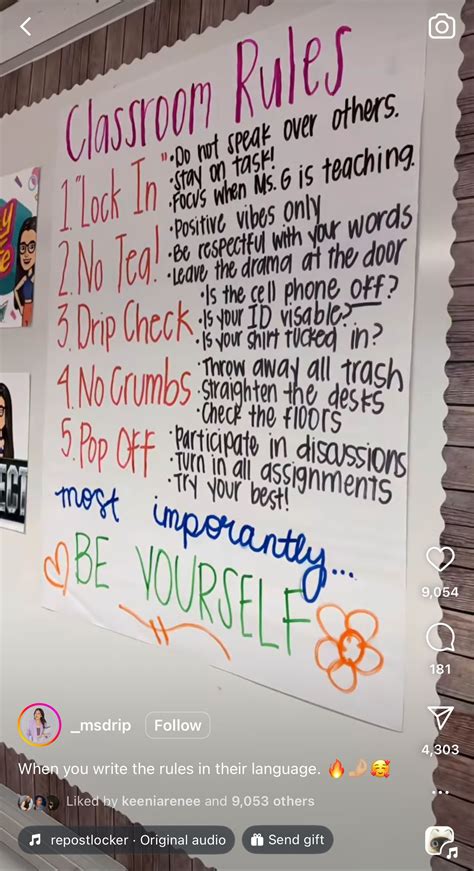 Classroom Rules
1. "Lock In"
• Do not speak over others.
• Stay on task!
• Focus when Ms. G is teaching.
2. No Tea!
• Positive vibes only
• Be respectful with your words
• Leave the drama at the door
3. Drip Check
• Is the cell phone off?
• Is your ID visable?
• Is your shirt tucked in?
4. No Crumbs
• Throw away all trash
• Straighten the desks
• Check the floors
5. Pop Off
• Participate in discussions
• Turn in all assignments
• Try your best!
most imporantly...
BE YOURSELF
9,054
181
4,303
_msdrip
Follow
When you write the rules in their language. 🔥🤌🏼🥰
Liked by keeniarenee and 9,053 others
repostlocker · Original audio
Send gift